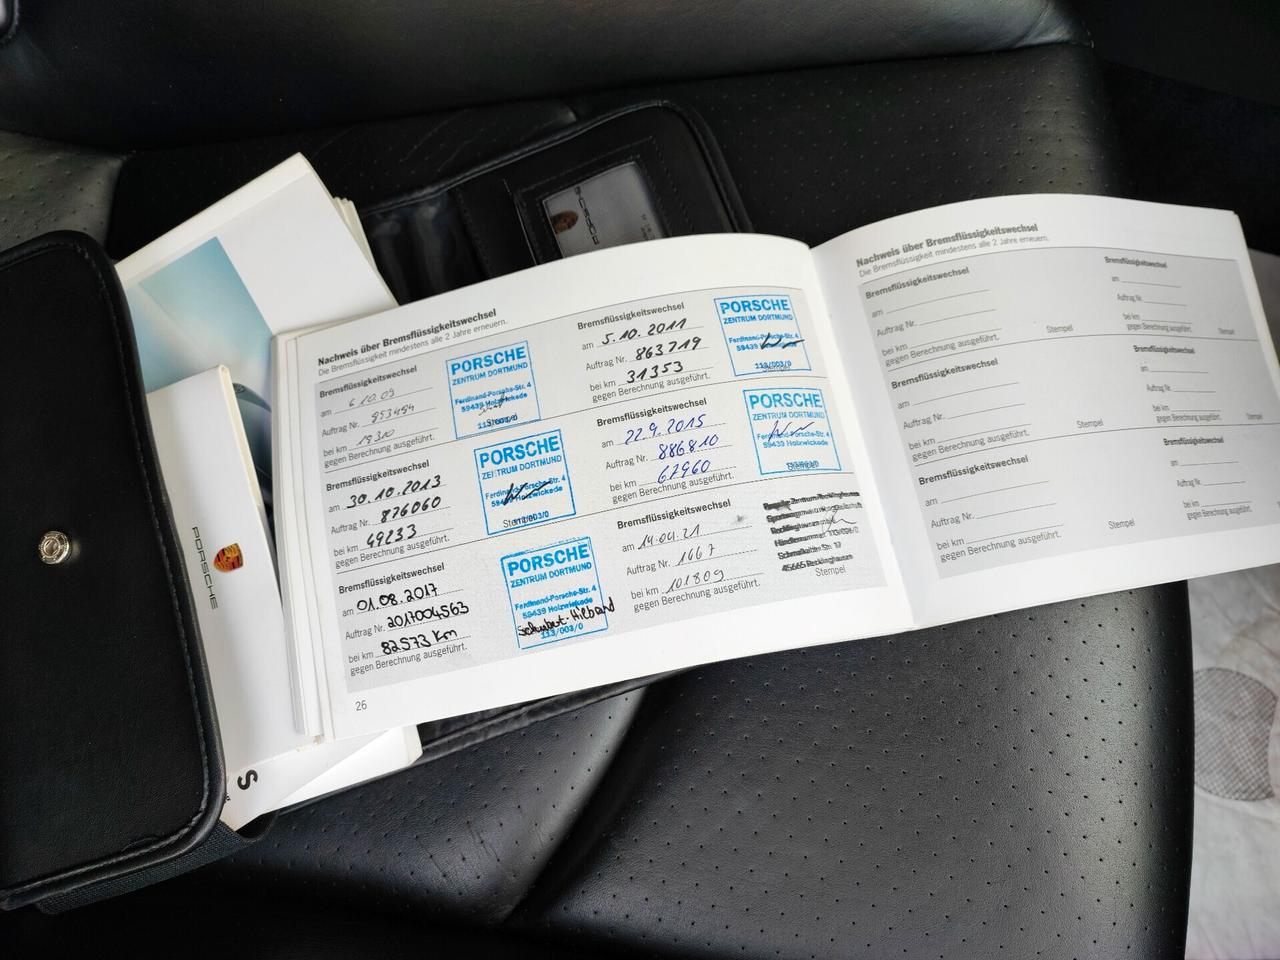 Nachweis über Bremsflüssigkeitswechsel
Die Bremsflüssigkeit mindestens alle 2 Jahre erneuern.
Bremsflüssigkeitswechsel
am 6.10.09
Auftrag Nr. 853494
bei km 18310
gegen Berechnung ausgeführt.
PORSCHE
ZENTRUM DORTMUND
Ferdinand-Porsche-Str. 4
59439 Holzwickede
113/003/0
Bremsflüssigkeitswechsel
am 5.10.2011
Auftrag Nr. 863719
bei km 31353
gegen Berechnung ausgeführt.
PORSCHE
ZENTRUM DORTMUND
Ferdinand-Porsche-Str. 4
59439
113/003/0
Bremsflüssigkeitswechsel
am 30.10.2013
Auftrag Nr. 876060
bei km 49233
gegen Berechnung ausgeführt.
PORSCHE
ZENTRUM DORTMUND
Ferdinand-Porsche-Str. 4
59439 Holzwickede
Bremsflüssigkeitswechsel
am 22.9.2015
Auftrag Nr. 886810
bei km 67960
gegen Berechnung ausgeführt.
PORSCHE
ZENTRUM DORTMUND
Ferdinand-Porsche-Str. 4
59439 Holzwickede
Bremsflüssigkeitswechsel
am 01.08.2017
Auftrag Nr. 2017004563
bei km 82573 km
gegen Berechnung ausgeführt.
PORSCHE
ZENTRUM DORTMUND
Ferdinand-Porsche-Str. 4
59439 Holzwickede
113/003/0
Bremsflüssigkeitswechsel
am 14.04.21
Auftrag Nr. 1667
bei km 101809
gegen Berechnung ausgeführt.
45665 Recklinghausen
Stempel
26
Nachweis über Bremsflüssigkeitswechsel
Die Bremsflüssigkeit mindestens alle 2 Jahre erneuern.
Bremsflüssigkeitswechsel
am
Auftrag Nr.
bei km
gegen Berechnung ausgeführt.
Stempel
Bremsflüssigkeitswechsel
am
Auftrag Nr.
bei km
gegen Berechnung ausgeführt.
Stempel
Bremsflüssigkeitswechsel
am
Auftrag Nr.
bei km
gegen Berechnung ausgeführt.
Stempel
Bremsflüssigkeitswechsel
am
Auftrag Nr.
bei km
gegen Berechnung ausgeführt.
Stempel
Bremsflüssigkeitswechsel
am
Auftrag Nr.
bei km
gegen Berechnung ausgeführt.
Stempel
Bremsflüssigkeitswechsel
am
Auftrag Nr.
bei km
gegen Berechnung ausgeführt.
Stempel
PORSCHE
PORSCHE
S